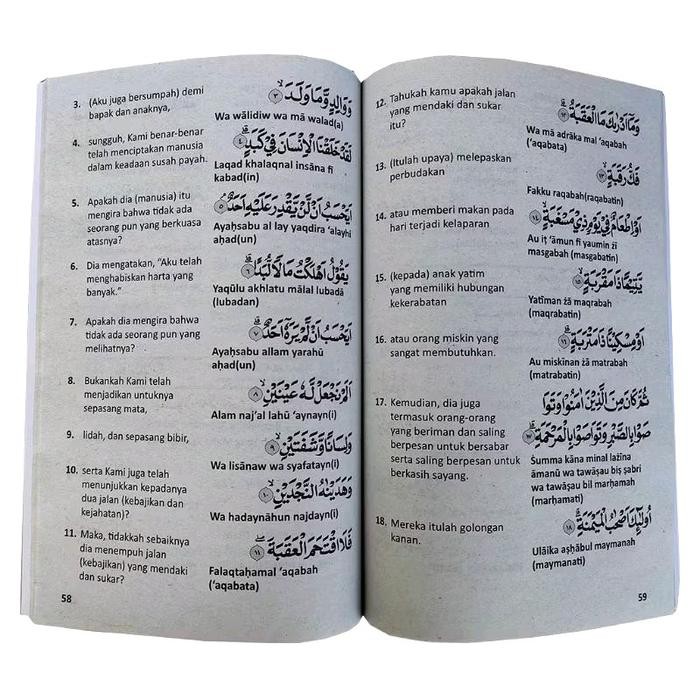 3. (Aku juga bersumpah) demi
bapak dan anaknya,
وَوَالِدٍ وَّمَا وَلَدَۙ ٣
Wa wālidiw wa mā walad(a)
4. sungguh, Kami benar-benar
telah menciptakan manusia
dalam keadaan susah payah.
لَقَدْ خَلَقْنَا الْاِنْسَانَ فِيْ كَبَدٍۗ ٤
Laqad khalaqnal insāna fī
kabad(in)
5. Apakah dia (manusia) itu
mengira bahwa tidak ada
seorang pun yang berkuasa
atasnya?
اَيَحْسَبُ اَنْ لَّنْ يَّقْدِرَ عَلَيْهِ اَحَدٌۘ ٥
Ayaḥsabu al lay yaqdira ‘alayhi
aḥad(un)
6. Dia mengatakan, “Aku telah
menghabiskan harta yang
banyak.”
يَقُوْلُ اَهْلَكْتُ مَالًا لُّبَدًاۗ ٦
Yaqūlu akhlatu mālal lubadā
(lubadan)
7. Apakah dia mengira bahwa
tidak ada seorang pun yang
melihatnya?
اَيَحْسَبُ اَنْ لَّمْ يَرَهٗٓ اَحَدٌۗ ٧
Ayaḥsabu allam yarahū
aḥad(un)
8. Bukankah Kami telah
menjadikan untuknya
sepasang mata,
اَلَمْ نَجْعَلْ لَّهٗ عَيْنَيْنِۙ ٨
Alam naj’al lahū ‘aynayn(i)
9. lidah, dan sepasang bibir,
وَلِسَانًا وَّشَفَتَيْنِۙ ٩
Wa lisānaw wa syafatayn(i)
10. serta Kami juga telah
menunjukkan kepadanya
dua jalan (kebajikan dan
kejahatan)?
وَهَدَيْنٰهُ النَّجْدَيْنِۙ ١٠
Wa hadaynāhun najdayn(i)
11. Maka, tidakkah sebaiknya
dia menempuh jalan
(kebajikan) yang mendaki
dan sukar?
فَلَا اقْتَحَمَ الْعَقَبَةَۖ ١١
Falaqtaḥamal ‘aqabah
(‘aqabata)
58
12. Tahukah kamu apakah jalan
yang mendaki dan sukar
itu?
وَمَآ اَدْرٰىكَ مَا الْعَقَبَةُۗ ١٢
Wa mā adrāka mal ‘aqabah
(‘aqabata)
13. (Itulah upaya) melepaskan
perbudakan
فَكُّ رَقَبَةٍۙ ١٣
Fakku raqabah(raqabatin)
14. atau memberi makan pada
hari terjadi kelaparan
اَوْ اِطْعَامٌ فِيْ يَوْمٍ ذِيْ مَسْغَبَةٍۙ ١٤
Au iṭ ‘āmun fī yaumin żī
masgabah (masgabatin)
15. (kepada) anak yatim
yang memiliki hubungan
kekerabatan
يَّتِيْمًا ذَا مَقْرَبَةٍۙ ١٥
Yatīman żā maqrabah
(maqrabatin)
16. atau orang miskin yang
sangat membutuhkan.
اَوْ مِسْكِيْنًا ذَا مَتْرَبَةٍۗ ١٦
Au miskīnan żā matrabah
(matrabatin)
17. Kemudian, dia juga
termasuk orang-orang
yang beriman dan saling
berpesan untuk bersabar
serta saling berpesan untuk
berkasih sayang.
ثُمَّ كَانَ مِنَ الَّذِيْنَ اٰمَنُوْا وَتَوَا
صَوْا بِالصَّبْرِ وَتَوَاصَوْا بِالْمَرْحَمَةِۗ ١٧
Ṡumma kāna minal lażīna
āmanū wa tawāṣau biṣ ṣabri
wa tawāṣau bil marḥamah
(marḥamati)
18. Mereka itulah golongan
kanan.
اُولٰۤىِٕكَ اَصْحٰبُ الْمَيْمَنَةِۗ ١٨
Ulāika aṣḥābul maymanah
(maymanati)
59